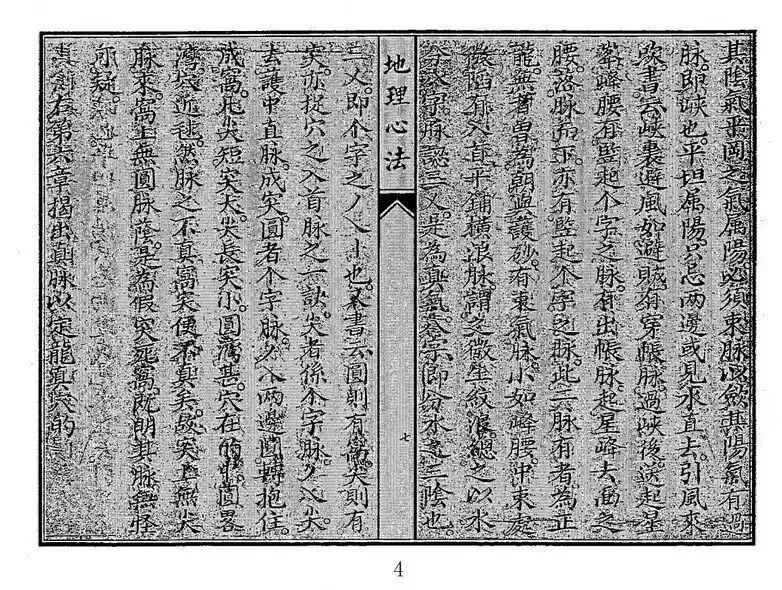 其陰氣垂岡之氣属陽必須束脉以斂其陽氣有
脉即峽也平坦属陽只忌两邊或見水直去引風來
吹書云峽裏避風如避賊有穿帳脉過峽後送起星
峯峰腰有竪起个字之脉有出帳脉起星峰去面之
腰落脉而下亦有竪起个字之脉此二脉有者為正
龍無者曽為朝與護砂有束氣脉小如蜂腰中束處
微陷有入首平鋪横浪脉謂之微生紋浪總之以水
分水脉認三义是為真氣分水之二陰也
地理心法
七
三义即个字之丿乀小也書云圓則有窩尖則有
突亦捉穴之入首脉之一訣尖者係个字脉丿乀尖
去護中直脉成突圓者个字脉丿乀两邊圓轉抱住
成窩此尖短突大尖長突小圓窩甚穴在的圓畧
窩穴近毬然脉之不真窩突便不真矣故突上無尖
脉來窩上無圓脉陰是為假突死窩既明其脉無怪
所疑
真訣右第六章揭出真脉以定龍真穴的
4